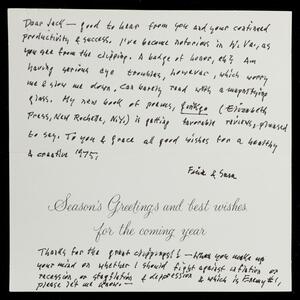 Dear Jack — good to hear from you and your continued
productivity & success. I've become notorious in W. Va., as
you see from the clipping. A badge of honor, eh? Am
having serious eye troubles, however, which worry
me & slow me down. Can barely read with a magnifying
glass. My new book of poems, Ginkgo (Elizabeth
Press, New Rochelle, N.Y.) is getting favorable reviews, pleased
to say. To you & Grace all good wishes for a healthy
& creative 1975,
Felix & Sara
Season's Greetings and best wishes
for the coming year
Thanks for the great clippings! — When you make up
your mind on whether I should fight against inflation or
recession, or stagflation & depression & which is Enemy #1,
please let me know —